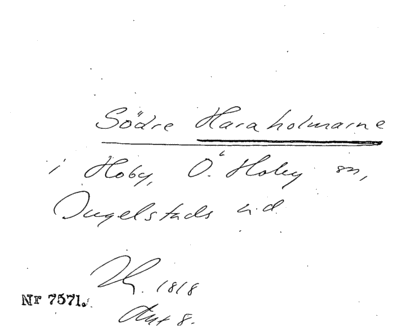 Södre Haraholmarne
i Hoby, Ö. Hoby sn,
Ingelstads hd
1818
Nr 7571.
8.